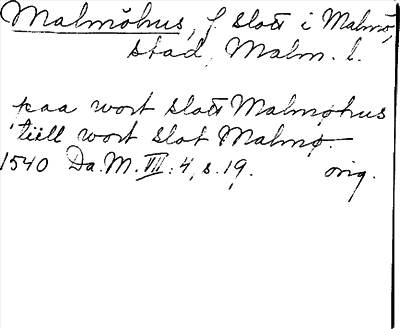 Malmöhus, f. slott i Malmö,
stad, Malm. l.
paa wort slott Malmøhus
tiill wort slot Malmø.
1540 Da. M. III: 4, s. 19. orig.